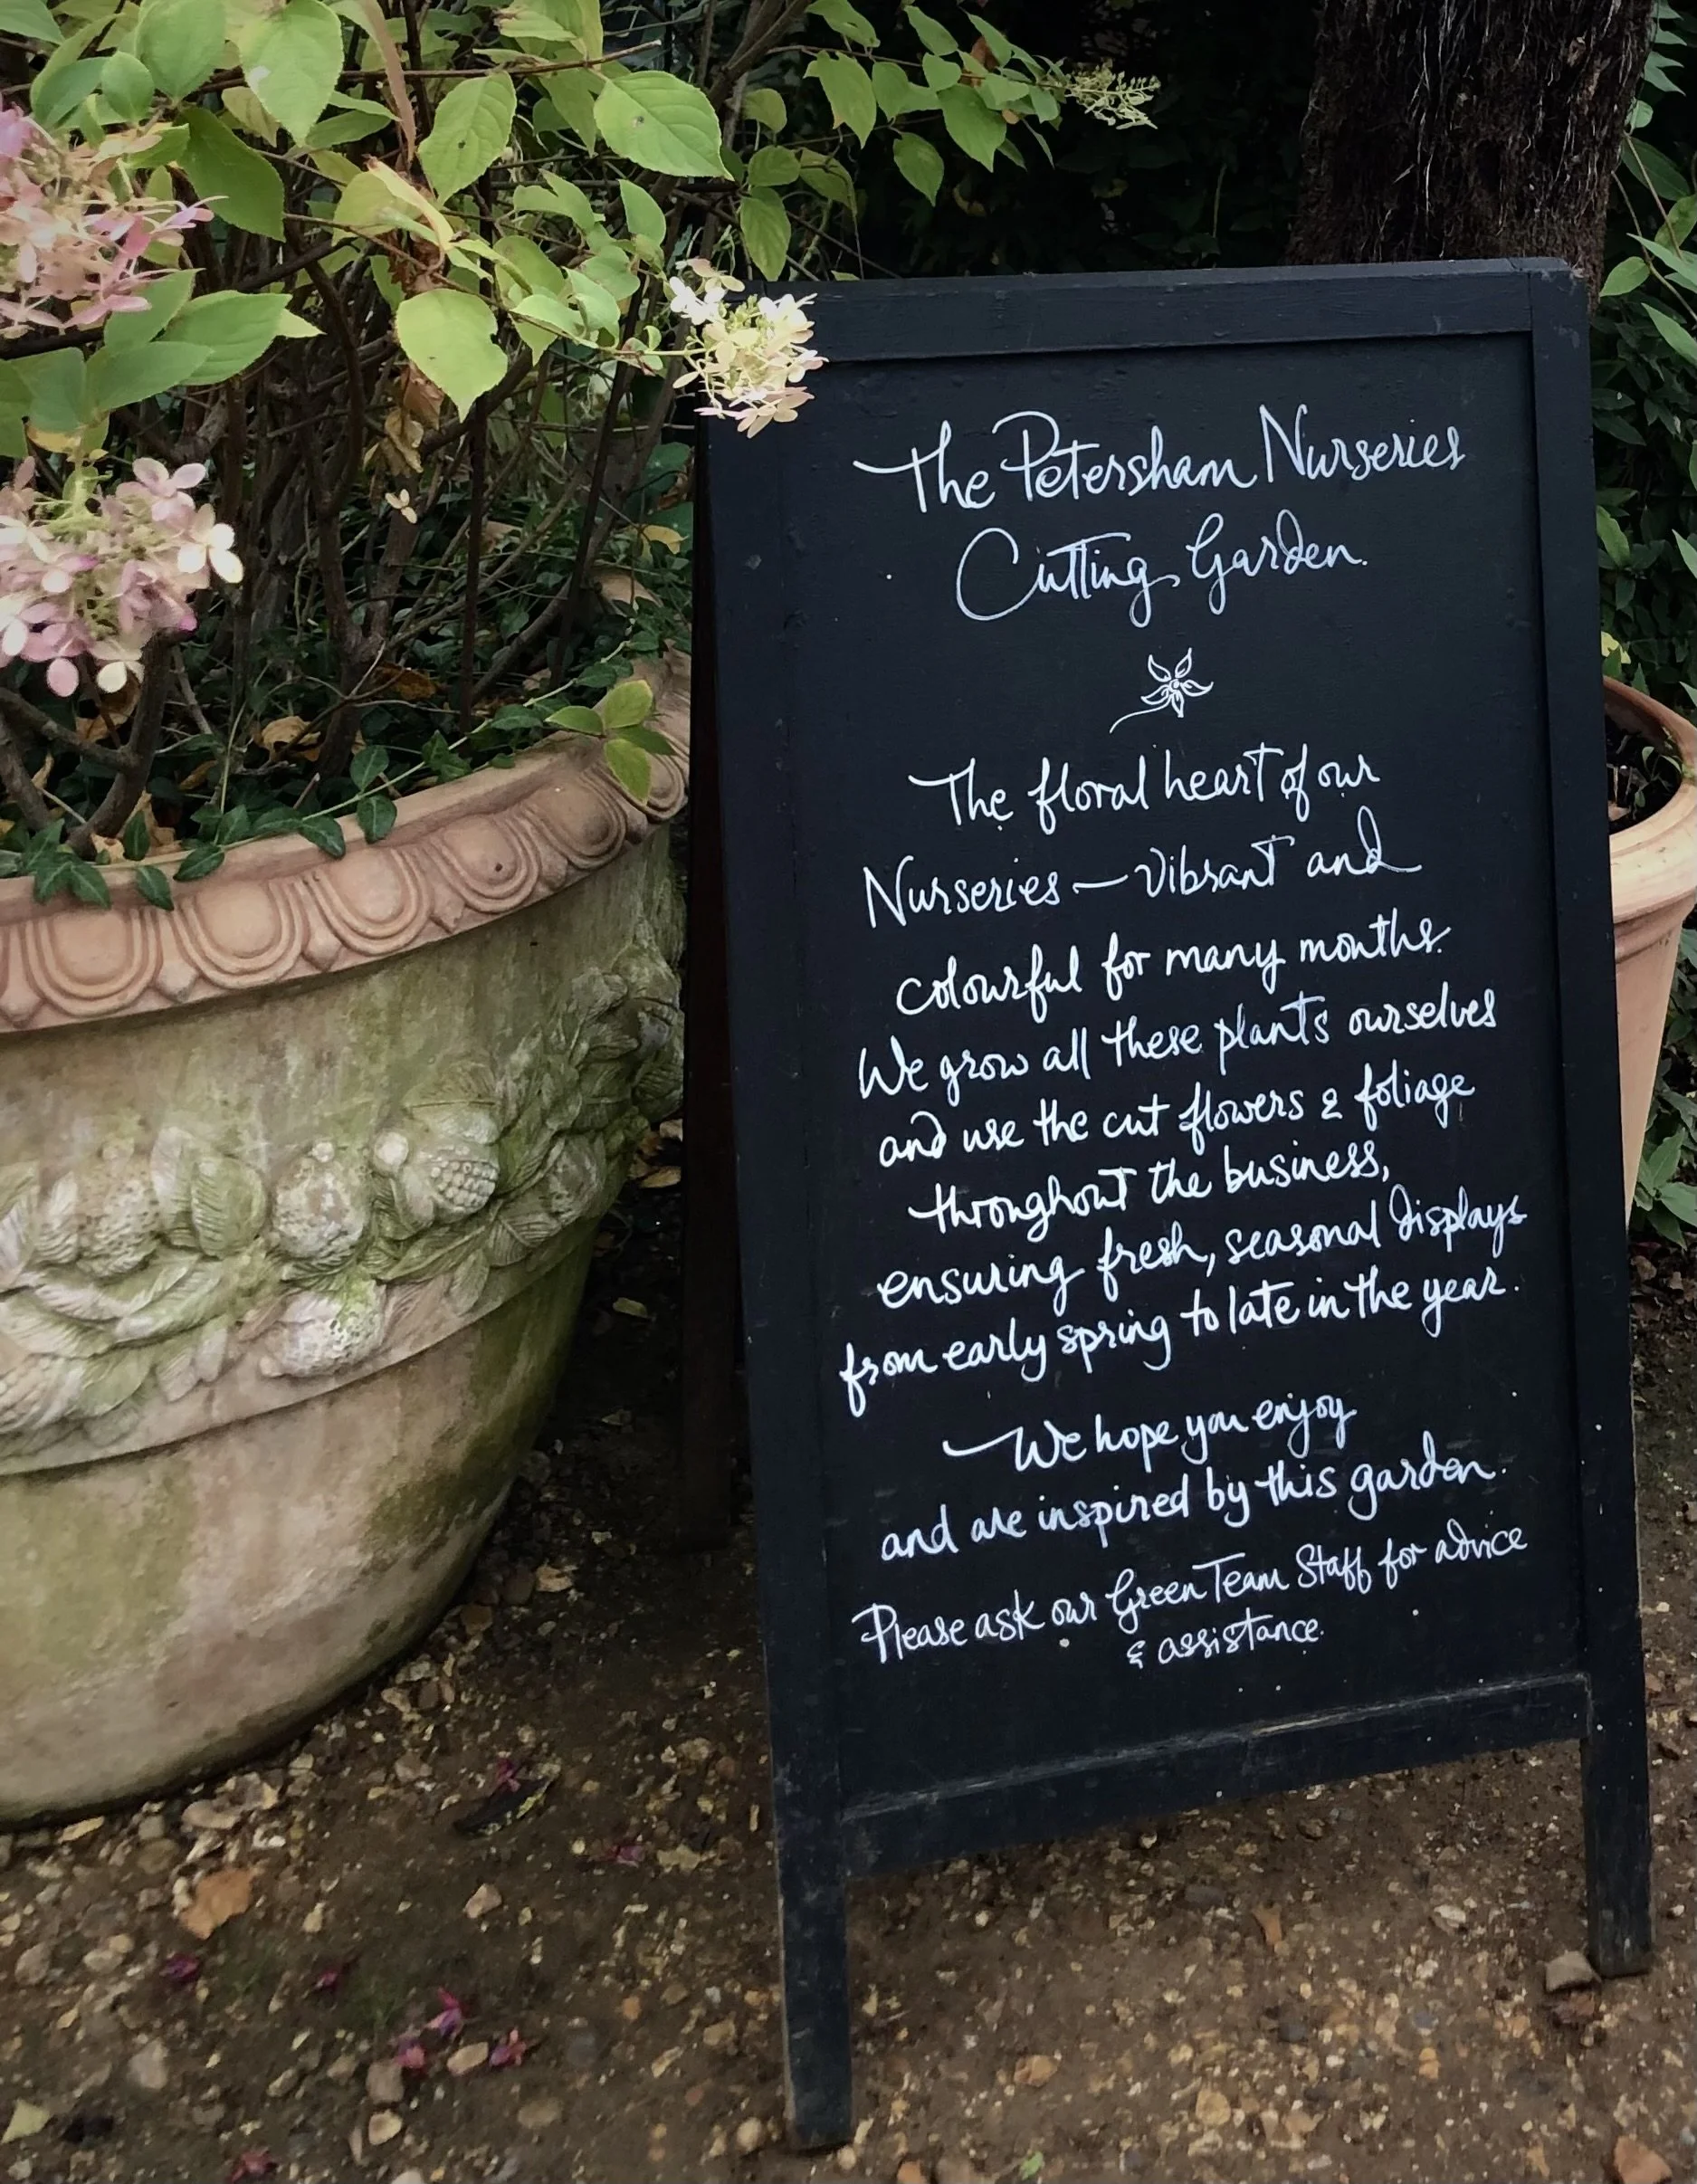 The Petersham Nurseries
Cutting Garden.
The floral heart of our
Nurseries — vibrant and
colourful for many months.
We grow all these plants ourselves
and use the cut flowers & foliage
throughout the business,
ensuring fresh, seasonal displays
from early spring to late in the year.
We hope you enjoy
and are inspired by this garden.
Please ask our Green Team Staff for advice
& assistance.